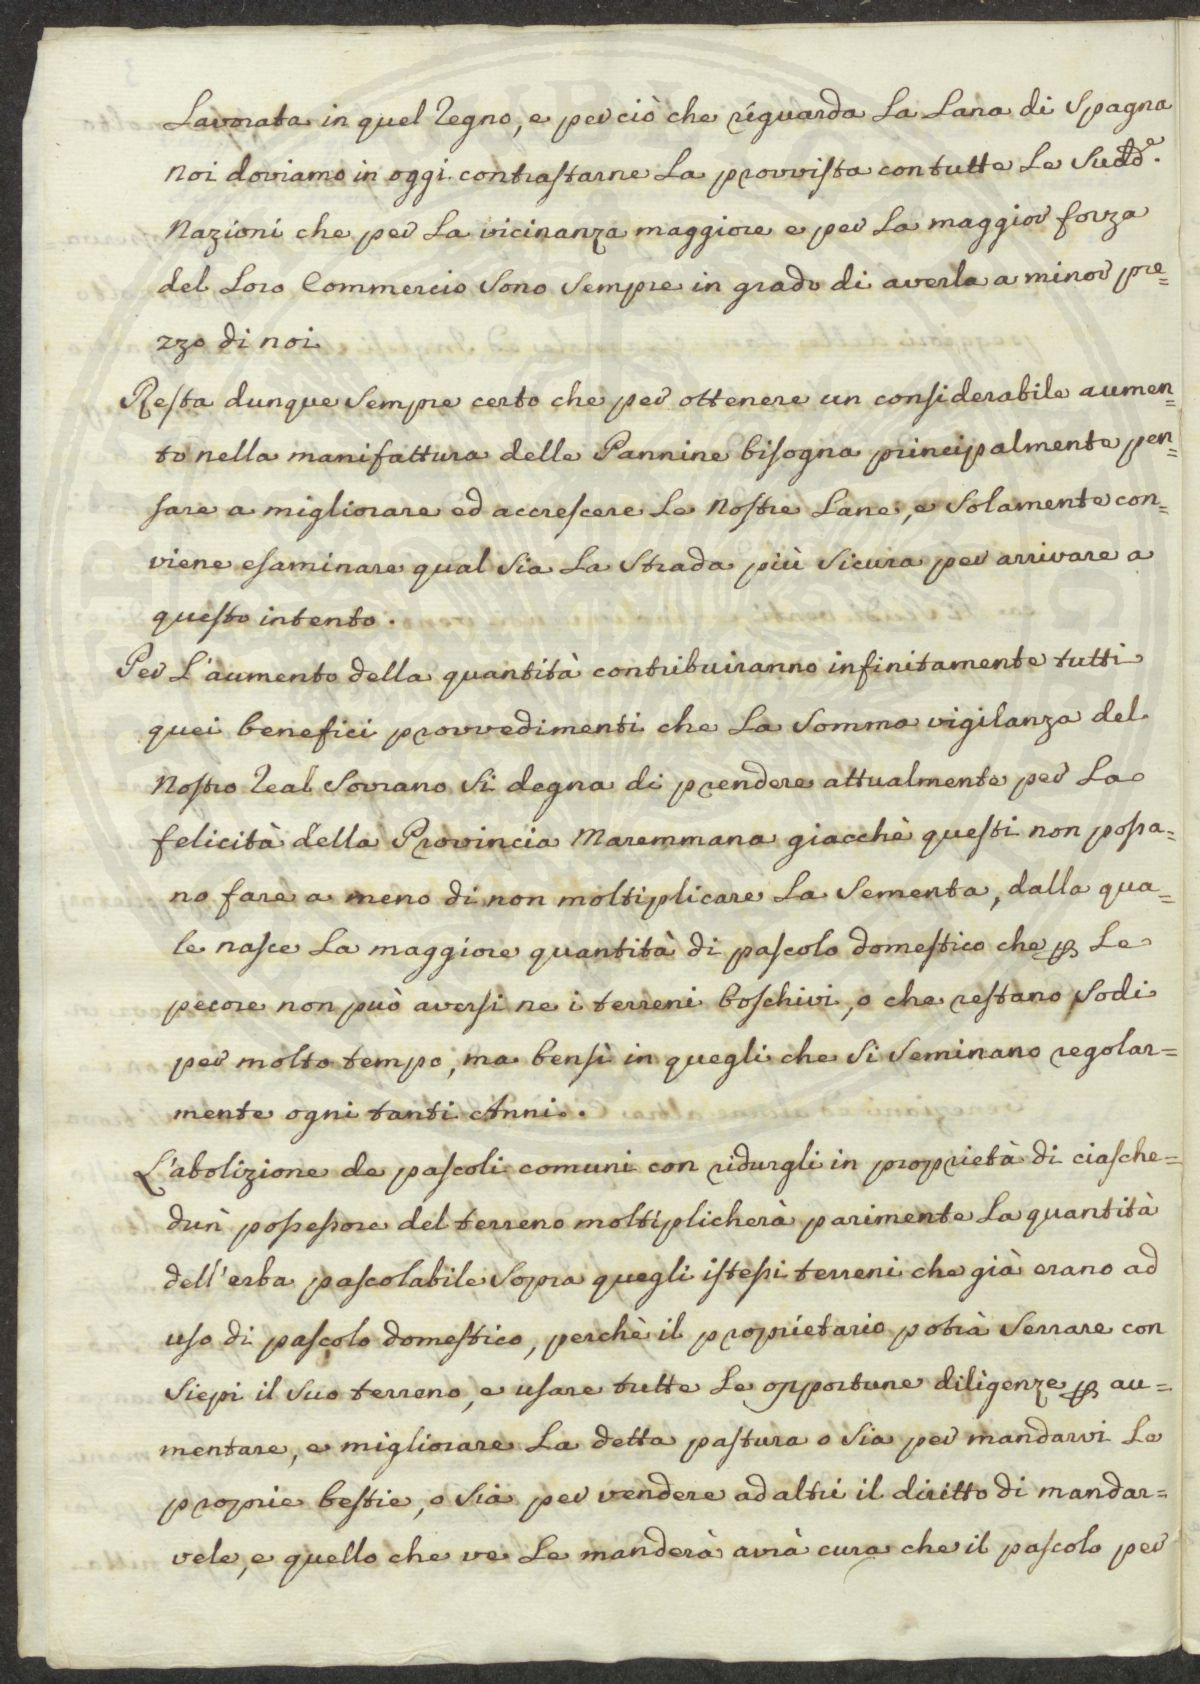 Lavorata in quel Regno, e per ciò che riguarda La Lana di Spagna
noi doviamo in oggi contrastarne La provvista con tutte Le Sudd.e
Nazioni che per La vicinanza maggiore e per La maggior forza
del Loro Commercio Sono Sempre in grado di averla a minor pre=
zzo di noi
Resta dunque Sempre certo che per ottenere un considerabile aumen=
to nella manifattura delle Pannine bisogna principalmente pen=
sare a migliorare ed accrescere Le Nostre Lane, e Solamente con=
viene esaminare qual Sia La Strada più Sicura per arrivare a
questo intento.
Per L'aumento della quantità contribuiranno infinitamente tutti
quei benefici provvedimenti che La Somma vigilanza del
Nostro Real Sovrano Si degna di prendere attualmente per La
felicità della Provincia Maremmana giacchè questi non possa=
no fare a meno di non moltiplicare La Sementa, dalla qua=
le nasce La maggiore quantità di pascolo domestico che p Le
pecore non può aversi ne i terreni boschivi, o che restano Sodi
per molto tempo, ma bensì in quegli che Si Seminano regolar=
mente ogni tanti Anni.
L'abolizione de pascoli comuni con ridurgli in proprietà di ciasche=
dun possessore del terreno moltiplicherà parimente La quantità
dell'erba pascolabile Sopra quegli istessi terreni che già erano ad
uso di pascolo domestico, perchè il proprietario potrà Serrare con
Siepi il Suo terreno, e usare tutte Le opportune diligenze p au=
mentare, e migliorare La detta pastura o Sia per mandarvi Le
proprie bestie, o Sia per vendere ad altri il diritto di mandar=
vele, e quello che ve Le manderà avrà cura che il pascolo per